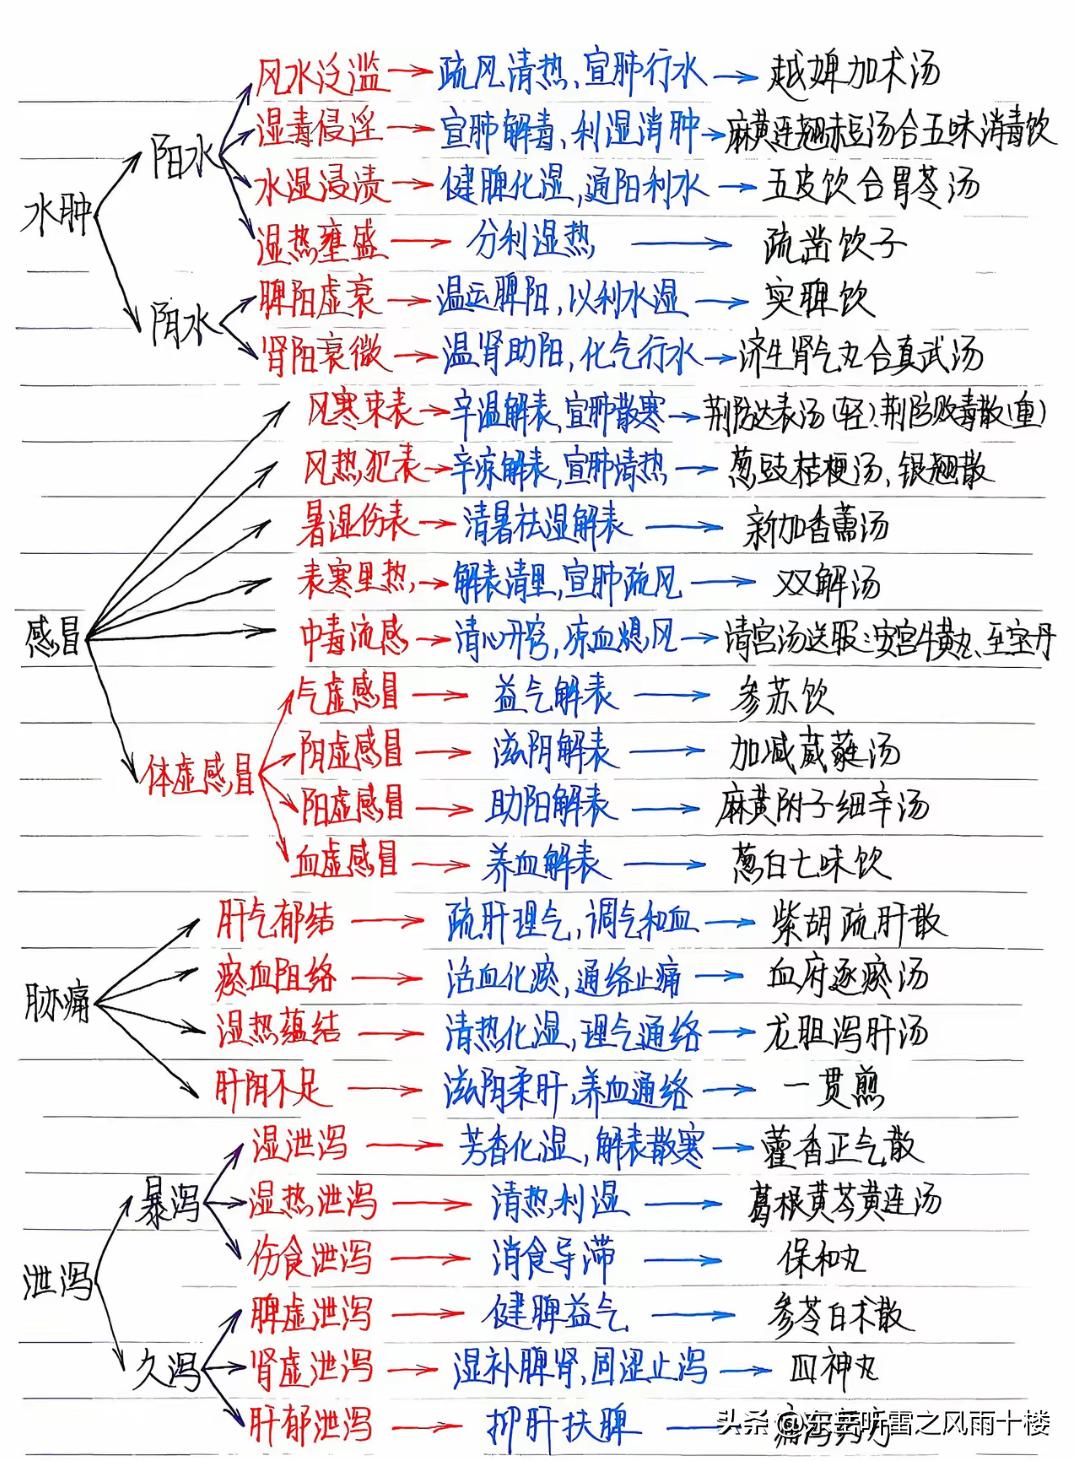 风水泛滥→疏风清热、宣肺行水→越婢加术汤
阳水 湿毒侵淫→宣肺解毒、利湿消肿→麻黄连翘赤豆汤合五味消毒饮
水湿浸渍→健脾化湿,通阳利水→五皮饮合胃苓汤
水肿
湿热壅盛→分利湿热→疏凿饮子
脾阳虚衰→温运脾阳,以利水湿→实脾饮
阳水
肾阳衰微→温肾助阳,化气行水→济生肾气丸合真武汤
风寒束表→辛温解表,宣肺散寒→荆防达表汤(轻).荆防败毒散(重)
风热犯表→辛凉解表,宣肺清热→葱豉桔梗汤,银翘散
暑湿伤表→清暑祛湿解表→新加香薷汤
表寒里热→解表清里,宣肺疏风→双解汤
感冒 中毒流感→清心开窍,凉血熄风→清宫汤送服:安宫牛黄丸、至宝丹
气虚感冒→益气解表→参苏饮
阳虚感冒→滋阴解表→加减葳蕤汤
体虚感冒
阳虚感冒→助阳解表→麻黄附子细辛汤
血虚感冒→养血解表→葱白七味饮
肝气郁结→疏肝理气,调气和血→紫胡疏肝散
瘀血阻络→活血化瘀,通络止痛→血府逐瘀汤
胁痛
湿热蕴结→清热化湿,理气通络→龙胆泻肝汤
肝阴不足→滋阴柔肝,养血通络→一贯煎
湿泄泻→芳香化湿,解表散寒→藿香正气散
暴泻 湿热泄泻→清热利湿→葛根黄芩黄连汤
伤食泄泻→消食导滞→保和丸
泄泻
脾虚泄泻→健脾益气→参苓白术散
久泻 肾虚泄泻→湿补脾肾,固涩止泻→四神丸
肝郁泄泻→抑肝扶脾→
头条 @东岳听雷之风雨十楼